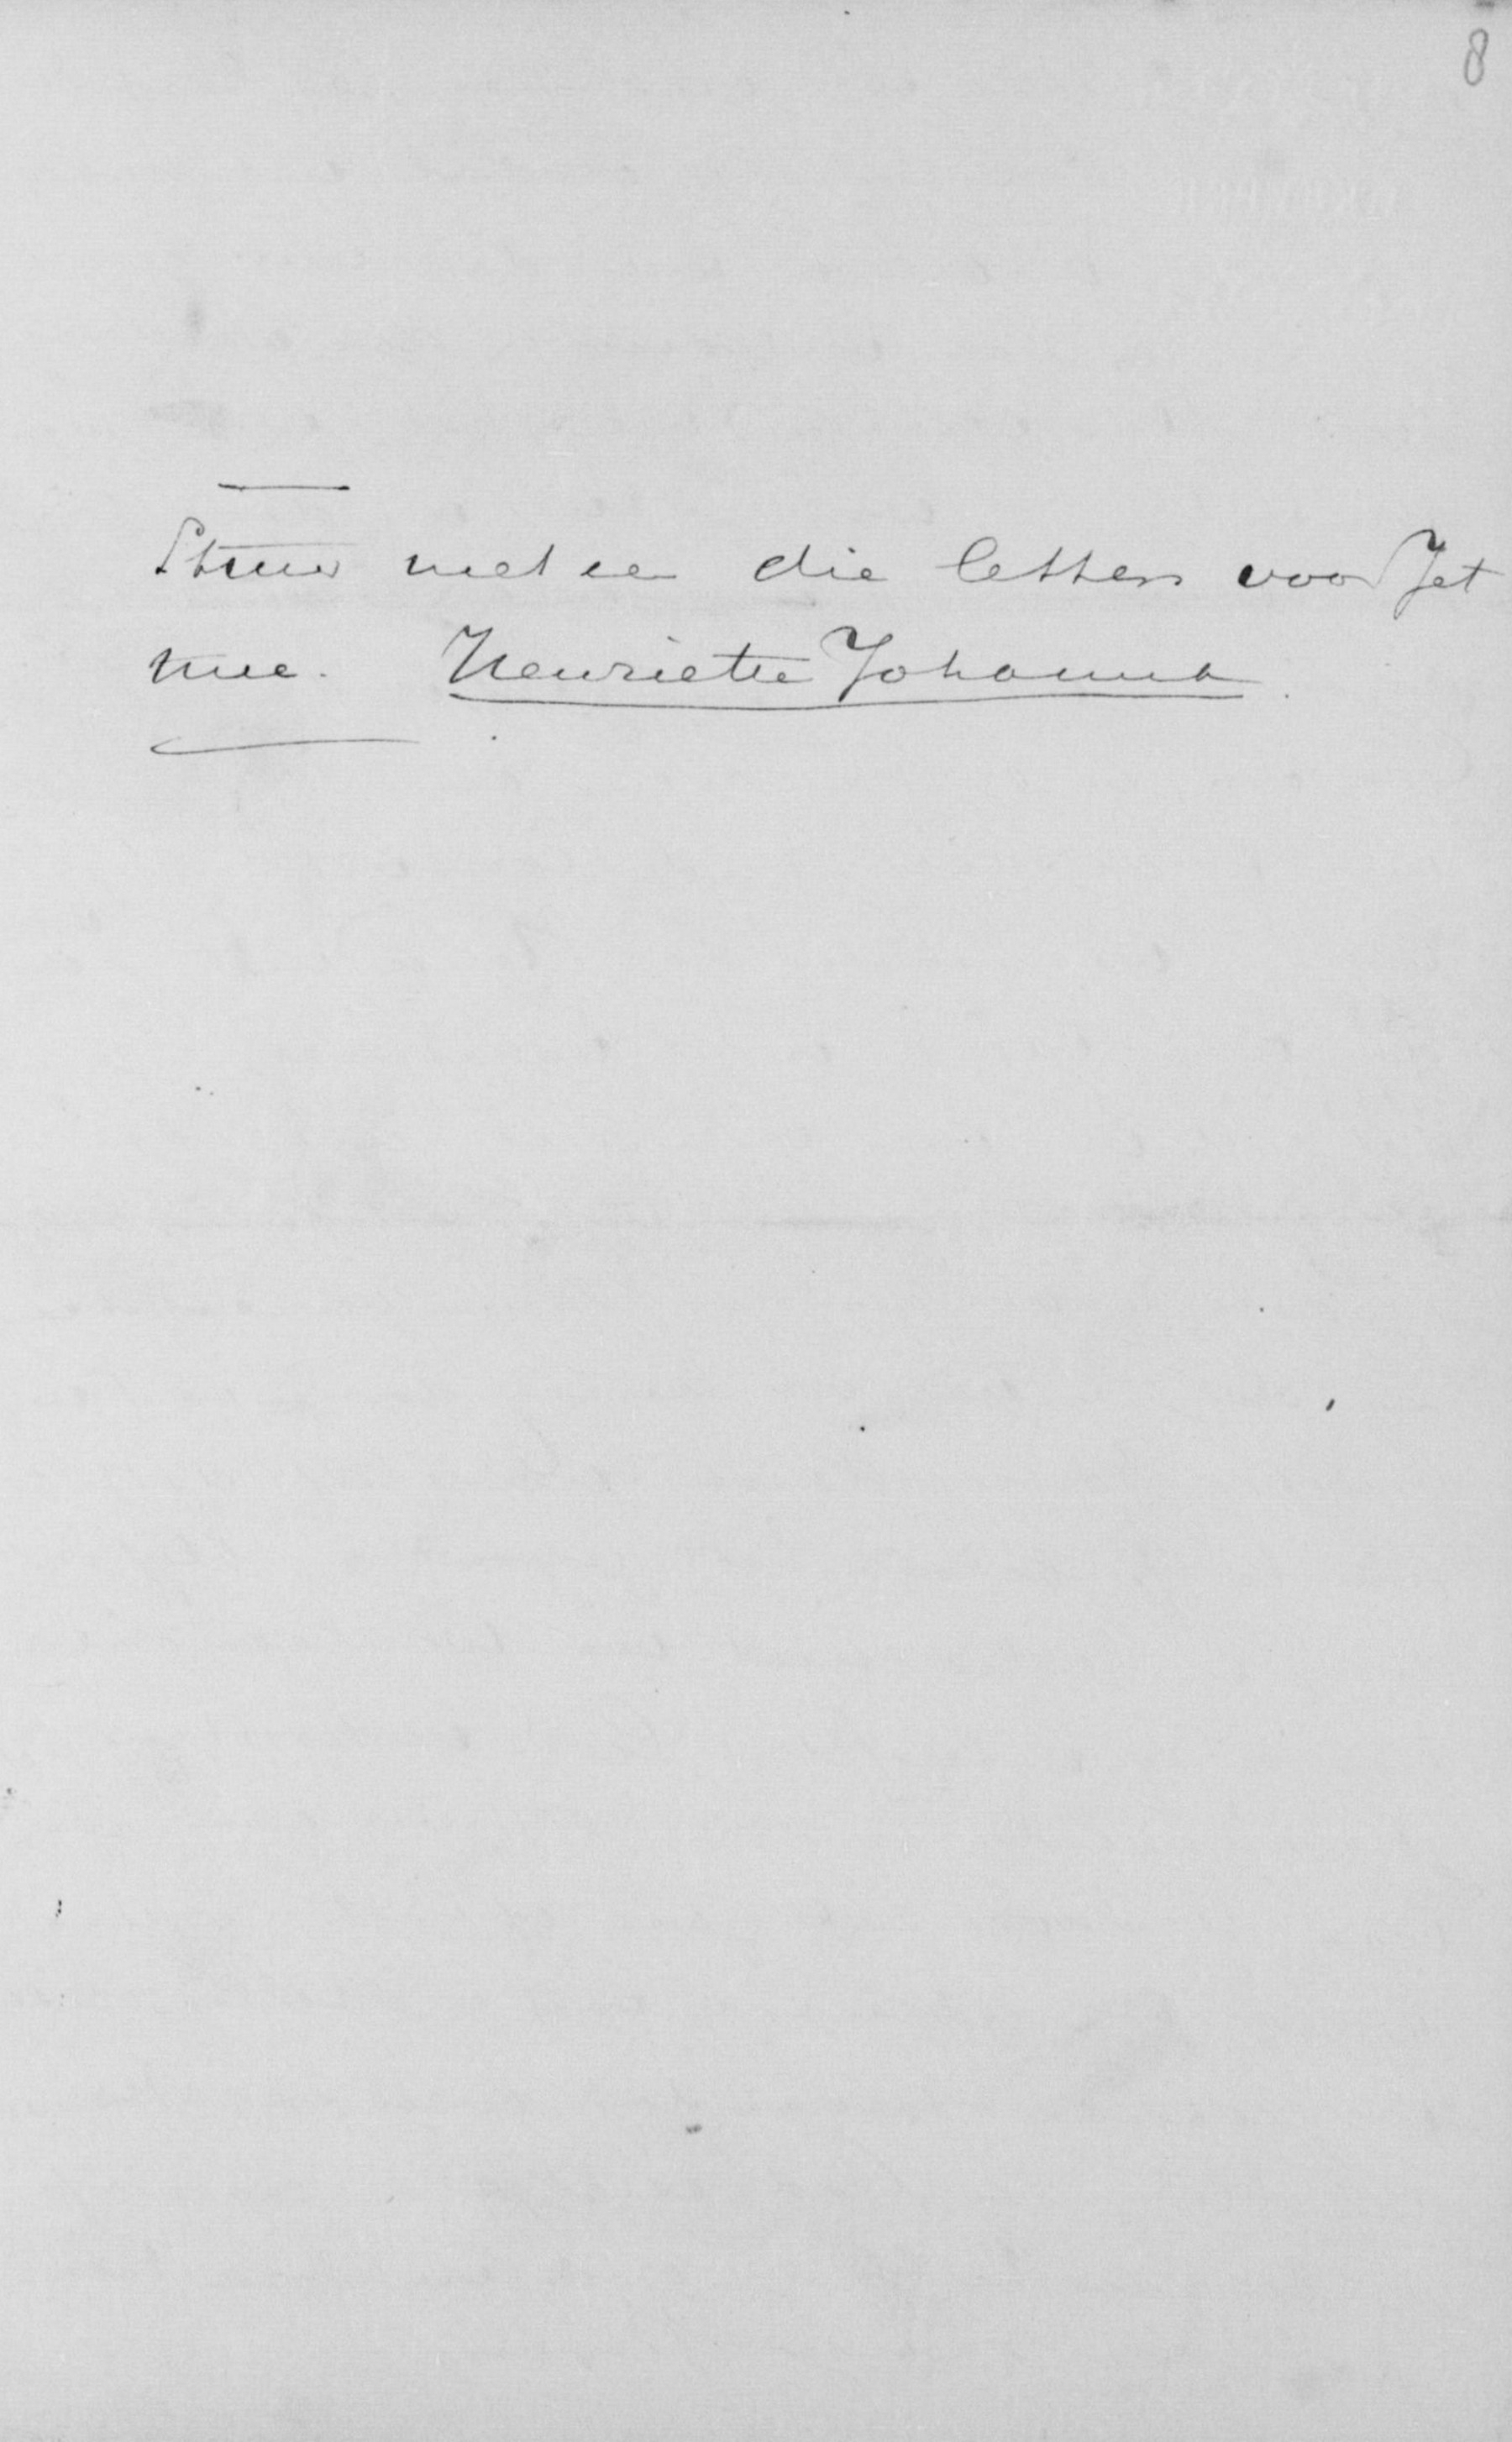 8
Stuur meteen die letters voor Jet
mee. Henriette Johanna.